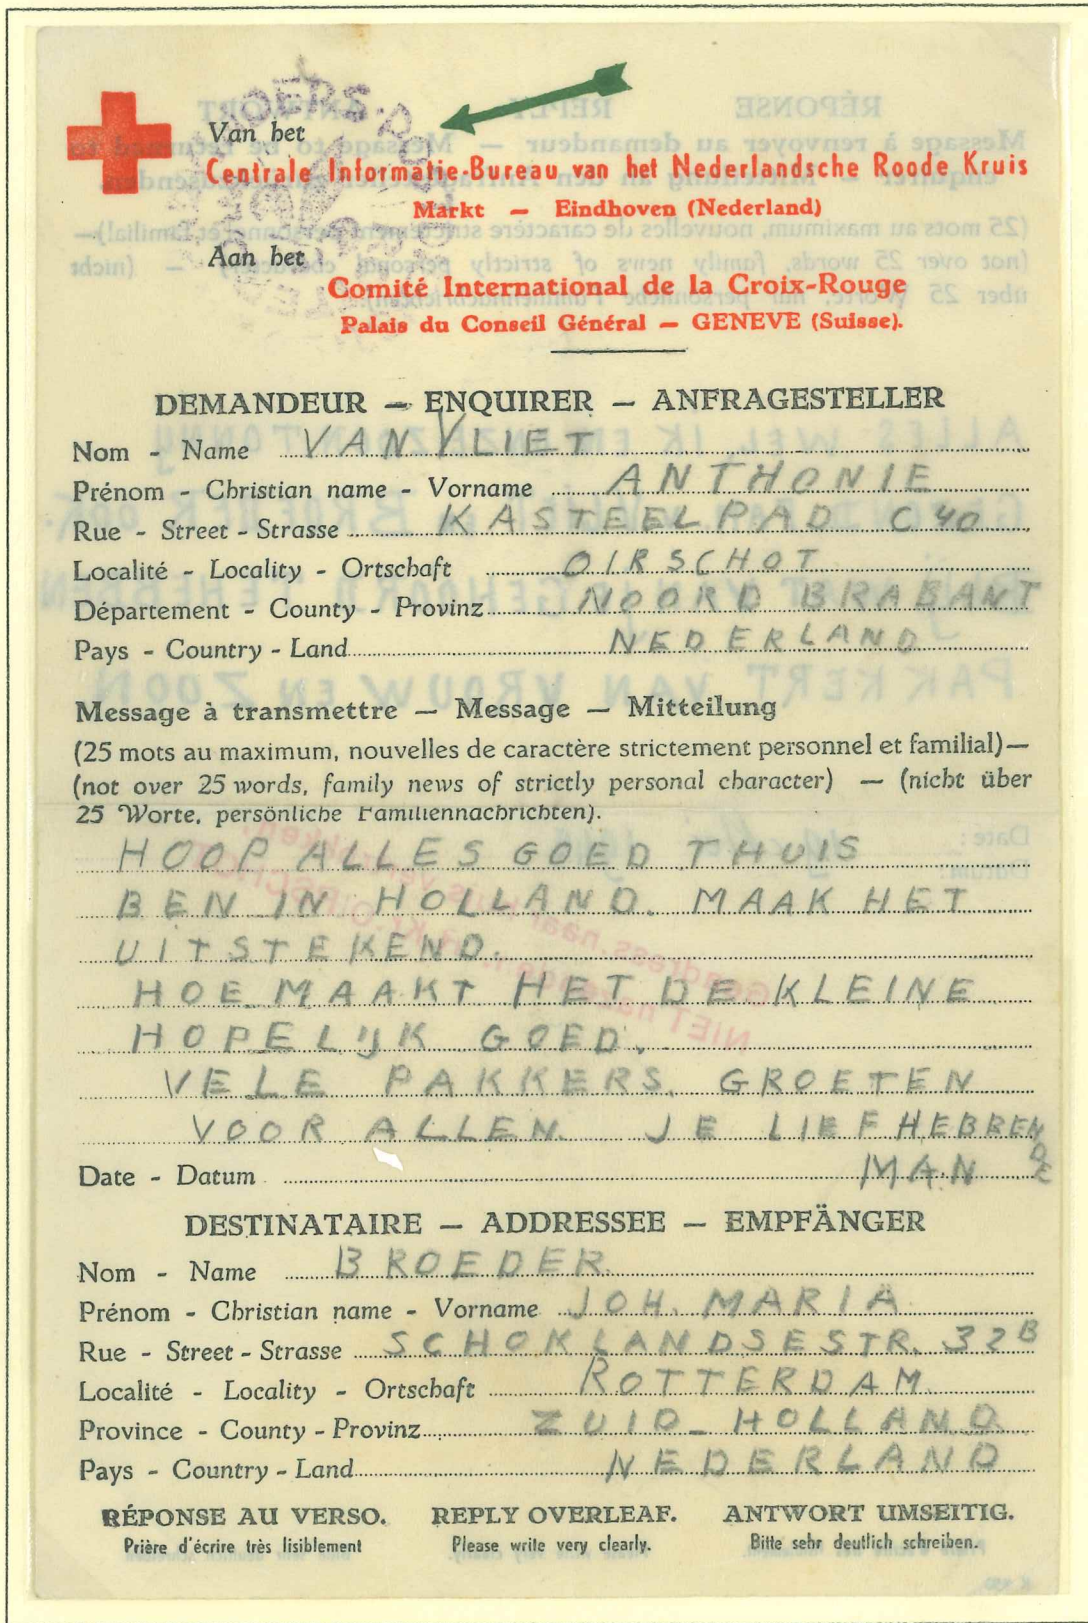 Van het
Centrale Informatie-Bureau van het Nederlandsche Roode Kruis
Markt — Eindhoven (Nederland)
Aan het
Comité International de la Croix-Rouge
Palais du Conseil Général — GENEVE (Suisse).
DEMANDEUR — ENQUIRER — ANFRAGESTELLER
Nom - Name VAN VLIET
Prénom - Christian name - Vorname ANTHONIE
Rue - Street - Strasse KASTEELPAD C 40
Localité - Locality - Ortschaft OIRSCHOT
Département - County - Provinz NOORD BRABANT
Pays - Country - Land NEDERLAND
Message à transmettre — Message — Mitteilung
(25 mots au maximum, nouvelles de caractère strictement personnel et familial) —
(not over 25 words, family news of strictly personal character) — (nicht über
25 Worte, persönliche Familiennachrichten).
HOOP ALLES GOED THUIS
BEN IN HOLLAND. MAAK HET
UITSTEKEND.
HOE MAAKT HET DE KLEINE
HOPELIJK GOED.
VELE PAKKERS. GROETEN
VOOR ALLEN. JE LIEFHEBBENDE
Date - Datum MAN
DESTINATAIRE — ADDRESSEE — EMPFÄNGER
Nom - Name BROEDER
Prénom - Christian name - Vorname JOH. MARIA
Rue - Street - Strasse SCHOKLANDSESTR. 32 B
Localité - Locality - Ortschaft ROTTERDAM
Province - County - Provinz ZUID-HOLLAND
Pays - Country - Land NEDERLAND
RÉPONSE AU VERSO. REPLY OVERLEAF. ANTWORT UMSEITIG.
Prière d'écrire très lisiblement Please write very clearly. Bitte sehr deutlich schreiben.